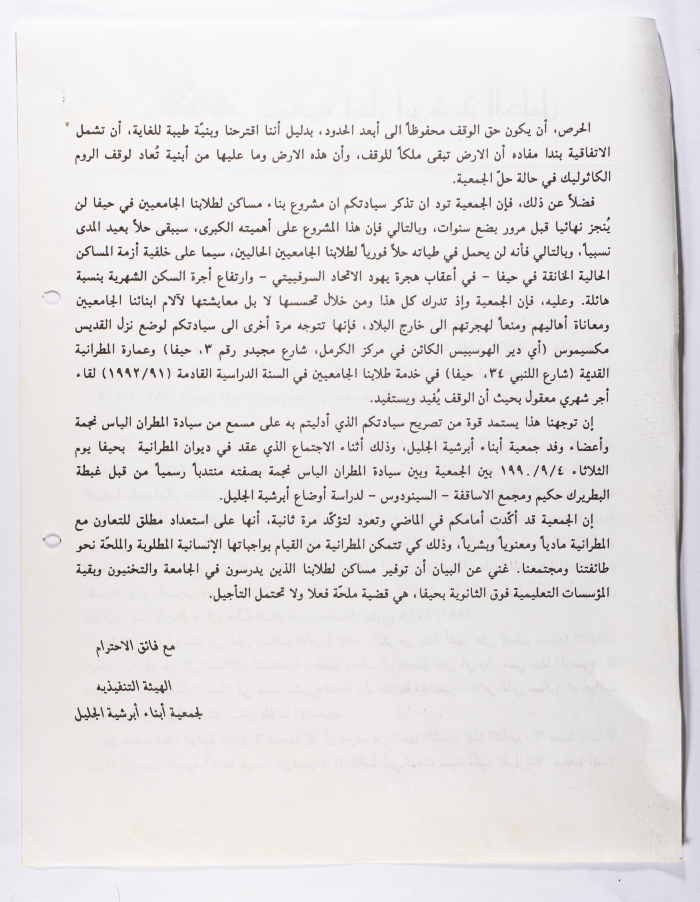 الحرص، أن يكون حق الوقف محفوظاً الى أبعد الحدود، بدليل أننا اقترحنا وبنيّة طيبة للغاية، أن تشمل
الاتفاقية بندا مفاده أن الارض تبقى ملكاً للوقف، وأن هذه الارض وما عليها من أبنية تُعاد لوقف الروم
الكاثوليك في حالة حلّ الجمعية.
فضلاً عن ذلك، فإن الجمعية تود ان تذكر سيادتكم ان مشروع بناء مساكن لطلابنا الجامعيين في حيفا لن
يُنجز نهائيا قبل مرور بضع سنوات، وبالتالي فإن هذا المشروع على أهميته الكبرى، سيبقى حلاً بعيد المدى
نسبياً، وبالتالي فأنه لن يحمل في طياته حلاً فورياً لطلابنا الجامعيين الحاليين، سيما على خلفية أزمة المساكن
الحالية الخانقة في حيفا - في أعقاب هجرة يهود الاتحاد السوفييتي - وارتفاع أجرة السكن الشهرية بنسبة
هائلة. وعليه، فإن الجمعية وإذ تدرك كل هذا ومن خلال تحسسها لا بل معايشتها لآلام ابنائنا الجامعيين
ومعاناة أهاليهم ومنعاً لهجرتهم الى خارج البلاد، فإنها تتوجه مرة أخرى الى سيادتكم لوضع نزل القديس
مكسيموس (أي دير الهوسبيس الكائن في مركز الكرمل، شارع مجيدو رقم ٣، حيفا) وعمارة المطرانية
القديمة (شارع اللنبي ٣٤، حيفا) في خدمة طلابنا الجامعيين في السنة الدراسية القادمة (١٩٩٢/٩١) لقاء
أجر شهري معقول بحيث أن الوقف يُفيد ويستفيد.
إن توجهنا هذا يستمد قوة من تصريح سيادتكم الذي أدليتم به على مسمع من سيادة المطران الياس نجمة
وأعضاء وفد جمعية أبناء أبرشية الجليل، وذلك أثناء الاجتماع الذي عقد في ديوان المطرانية بحيفا يوم
الثلاثاء ١٩٩٠/٩/٤ بين الجمعية وبين سيادة المطران الياس نجمة بصفته منتدباً رسمياً من قبل غبطة
البطريرك حكيم ومجمع الاساقفة - السينودس - لدراسة أوضاع أبرشية الجليل.
إن الجمعية قد أكّدت أمامكم في الماضي وتعود لتؤكّد مرة ثانية، أنها على استعداد مطلق للتعاون مع
المطرانية مادياً ومعنوياً وبشرياً، وذلك كي تتمكن المطرانية من القيام بواجباتها الإنسانية المطلوبة والملحّة نحو
طائفتنا ومجتمعنا. غني عن البيان أن توفير مساكن لطلابنا الذين يدرسون في الجامعة والتخنيون وبقية
المؤسسات التعليمية فوق الثانوية بحيفا، هي قضية ملحّة فعلا ولا تحتمل التأجيل.
مع فائق الاحترام
الهيئة التنفيذيه
لجمعية أبناء أبرشية الجليل